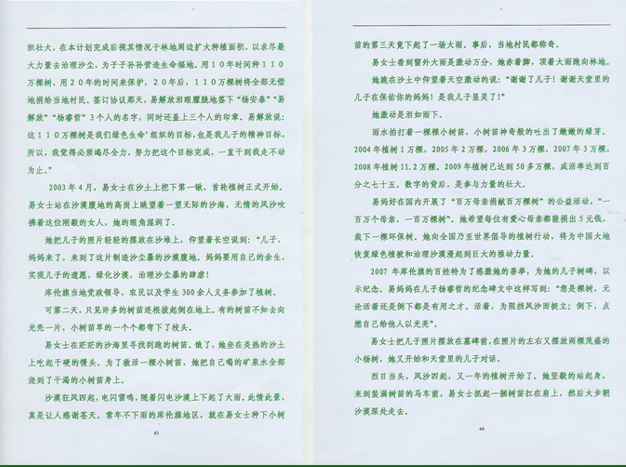 织壮大，在本计划完成后视其情况于林地周边扩大种植面积，以求尽最
大力量去治理沙尘，为子子孙孙营造生命福地。用１０年时间种１１０
万棵树，用２０年的时间来保护，２０年后，１１０万棵树将全部无偿
地捐给当地村民。签订协议那天，易解放泪眼朦胧地签下“杨安泰”“易
解放”“杨睿哲”３个人的名字，同时还盖上三个人的印章。易解放说：
这１１０万棵树是我们绿色生命’组织的目标，也是我儿子的精神目标，
所以，我觉得必须竭尽全力，努力把这个目标完成，一直干到我走不动
为止。”
2003 年 4 月，易女士在沙土上挖下第一锹，首轮植树正式开始。
易女士站在沙漠腹地的高岗上眺望着一望无际的沙海，无情的风沙吹
拂着这位刚毅的女人，她的眼角湿润了。
她把儿子的照片轻轻的摆放在沙堆上，仰望着长空说到：“儿子，
妈妈来了，来到了这片制造沙尘暴的沙漠腹地。妈妈要用自己的余生，
实现儿子的遗愿，绿化沙漠，治理沙尘暴的肆虐！
库伦旗当地党政领导、农民以及学生 300 余人义务参加了植树。
可第二天，只见许多的树苗连根拔起倒在地上。有的树苗不知去向
光秃一片，小树苗早的一个个都弯下了枝头。
易女士在茫茫的沙海里寻找到跑的树苗。饿了，她坐在炎热的沙土
上吃起干硬的馒头。为了救活一棵小树苗，她把自己喝的矿泉水全部
浇到了干渴的小树苗身上。
沙漠狂风四起，电闪雷鸣，随着闪电沙漠上下起了大雨。此情此景，
真是让人感谢苍天。常年不下雨的库伦旗地区，就在易女士种下小树
43
苗的第三天竟下起了一场大雨。事后，当地村民都称奇。
易女士看到窗外大雨是激动万分，她赤着脚，顶着大雨跑向林地。
她跪在沙土中仰望着天空激动的说：“谢谢了儿子！谢谢天堂里的
儿子在保佑你的妈妈！是我儿子显灵了！”
她激动是泪如雨下。
雨水拍打着一棵棵小树苗，小树苗神奇般的吐出了嫩嫩的绿芽。
2004 年植树 1 万棵，2005 年 2 万棵，2006 年 3 万棵，2007 年 3 万棵，
2008 年植树 11.2 万棵。2009 年植树已达到 50 多万棵，成活率达到百
分之七十五。数字的背后，是参与力量的壮大。
易妈妈在国内开展了“百万母亲捐献百万棵树”的公益活动，“一
百万个母亲，一百万棵树”。她希望每位有爱心母亲都能捐出 5 元钱，
栽下一棵环保树。她向全国乃至世界倡导的植树行动，将为中国大地
恢复绿色植被和治理沙漠漫起到巨大的推动力量。
2007 年库伦旗的百姓特为了感激她的善事，为她的儿子树碑，以
示纪念。易妈妈在儿子杨睿哲的纪念碑文中这样写到：“您是棵树，无
论活着还是倒下都是有用之才。活着，为阻挡风沙而挺立；倒下，点
燃自己给他人以光亮”。
易女士把儿子照片摆放在墓碑前，在照片的左右又摆放两棵茂盛的
小杨树，她又开始和天堂里的儿子对话。
烈日当头，风沙四起，又一年的植树开始了。她坚毅的站起身，
来到装满树苗的马车前，易女士抓起一捆树苗扛在肩上，然后大步朝
沙漠深处走去。
44